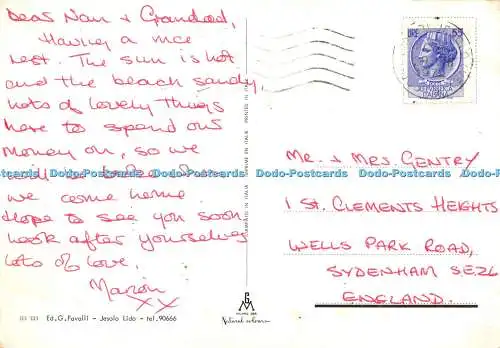 Dear Nan & Grandad,
Having a nice
rest. The sun is hot
and the beach sandy,
lots of lovely things
here to spend our
money on, so we
will be broke when
we come home.
Hope to see you soon
look after yourselves
lots of love.
Marion
XX
LIRE 55
Mr. & Mrs. GENTRY
1 St. CLEMENTS HEIGHTS
WELLS PARK ROAD,
SYDENHAM SE26
ENGLAND.
Dodo-Postcards Dodo-Postcards Dodo-Postcards Dodo-Postcards Dodo-Postcards
Ed. G. Favalli - Jesolo Lido - tel. 90666
Natural colours